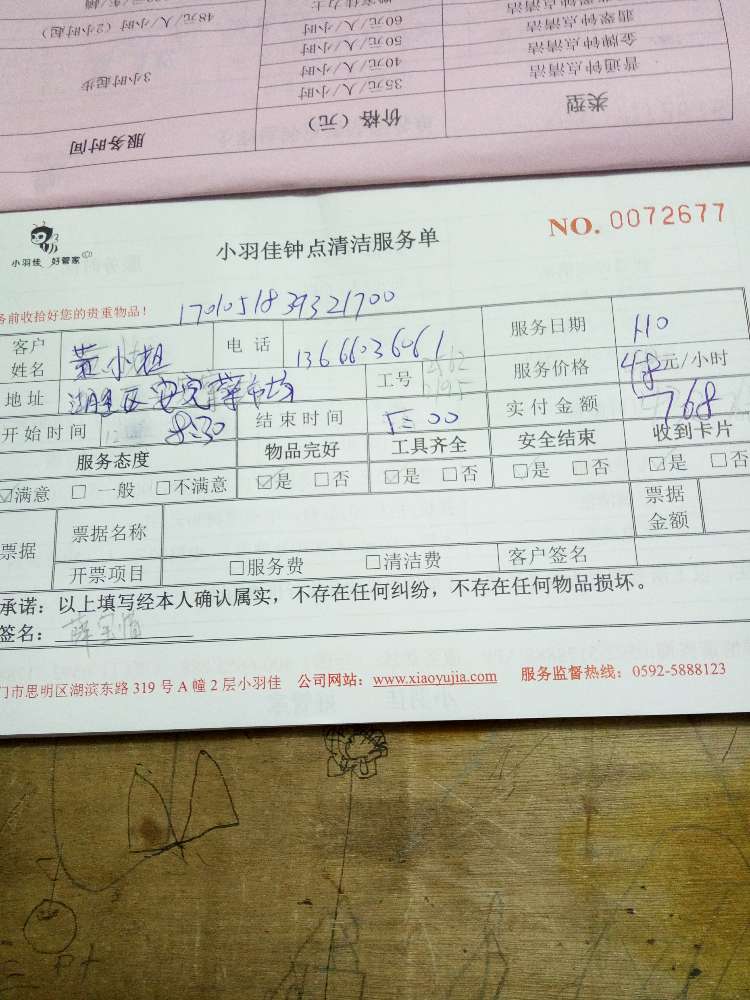 类型 价格（元） 服务时间
普通钟点清洁 35元/人/小时 3小时起步
金牌钟点清洁 40元/人/小时
翡翠钟点清洁 50元/人/小时
60元/人/小时 48元/人/小时（2小时起）
小羽佳 好管家
小羽佳钟点清洁服务单
NO. 0072677
务前收拾好您的贵重物品！
1701051839321700
客户姓名 黄小姐 电话 13666036061 服务日期 1.10
地址 湖里区安兜菜市场 工号 服务价格 48元/小时
开始时间 8:30 结束时间 5:00 实付金额 768
服务态度 物品完好 工具齐全 安全结束 收到卡片
☑满意 □一般 □不满意 ☑是 □否 ☑是 □否 ☑是 □否 ☑是 □否
票据 票据名称 票据金额
开票项目 □服务费 □清洁费 客户签名
承诺：以上填写经本人确认属实，不存在任何纠纷，不存在任何物品损坏。
签名：
门市思明区湖滨东路 319 号 A 幢 2 层小羽佳 公司网站：www.xiaoyujia.com 服务监督热线：0592-5888123